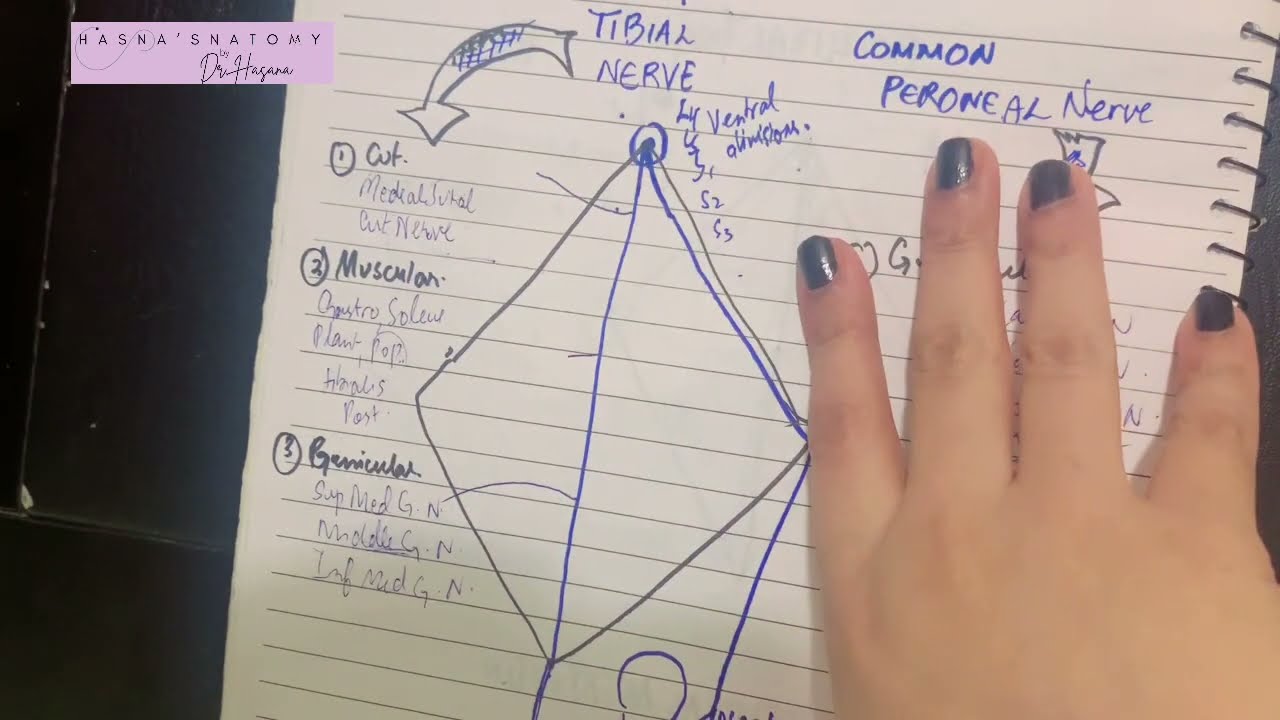 HASNA'SNATOMY
by
Dr.Hasana
TIBIAL
NERVE
COMMON
PERONEAL Nerve
L4 Ventral
divisions.
S1
S2
S3
① Cut.
Medial Sural
Cut Nerve
② Muscular.
Gastro, Soleus
Plant, Pop.
tibialis
Post.
③ Genicular
Sup Med G.N.
Middle G.N.
Inf Med G.N.
G.
N
N.
N.